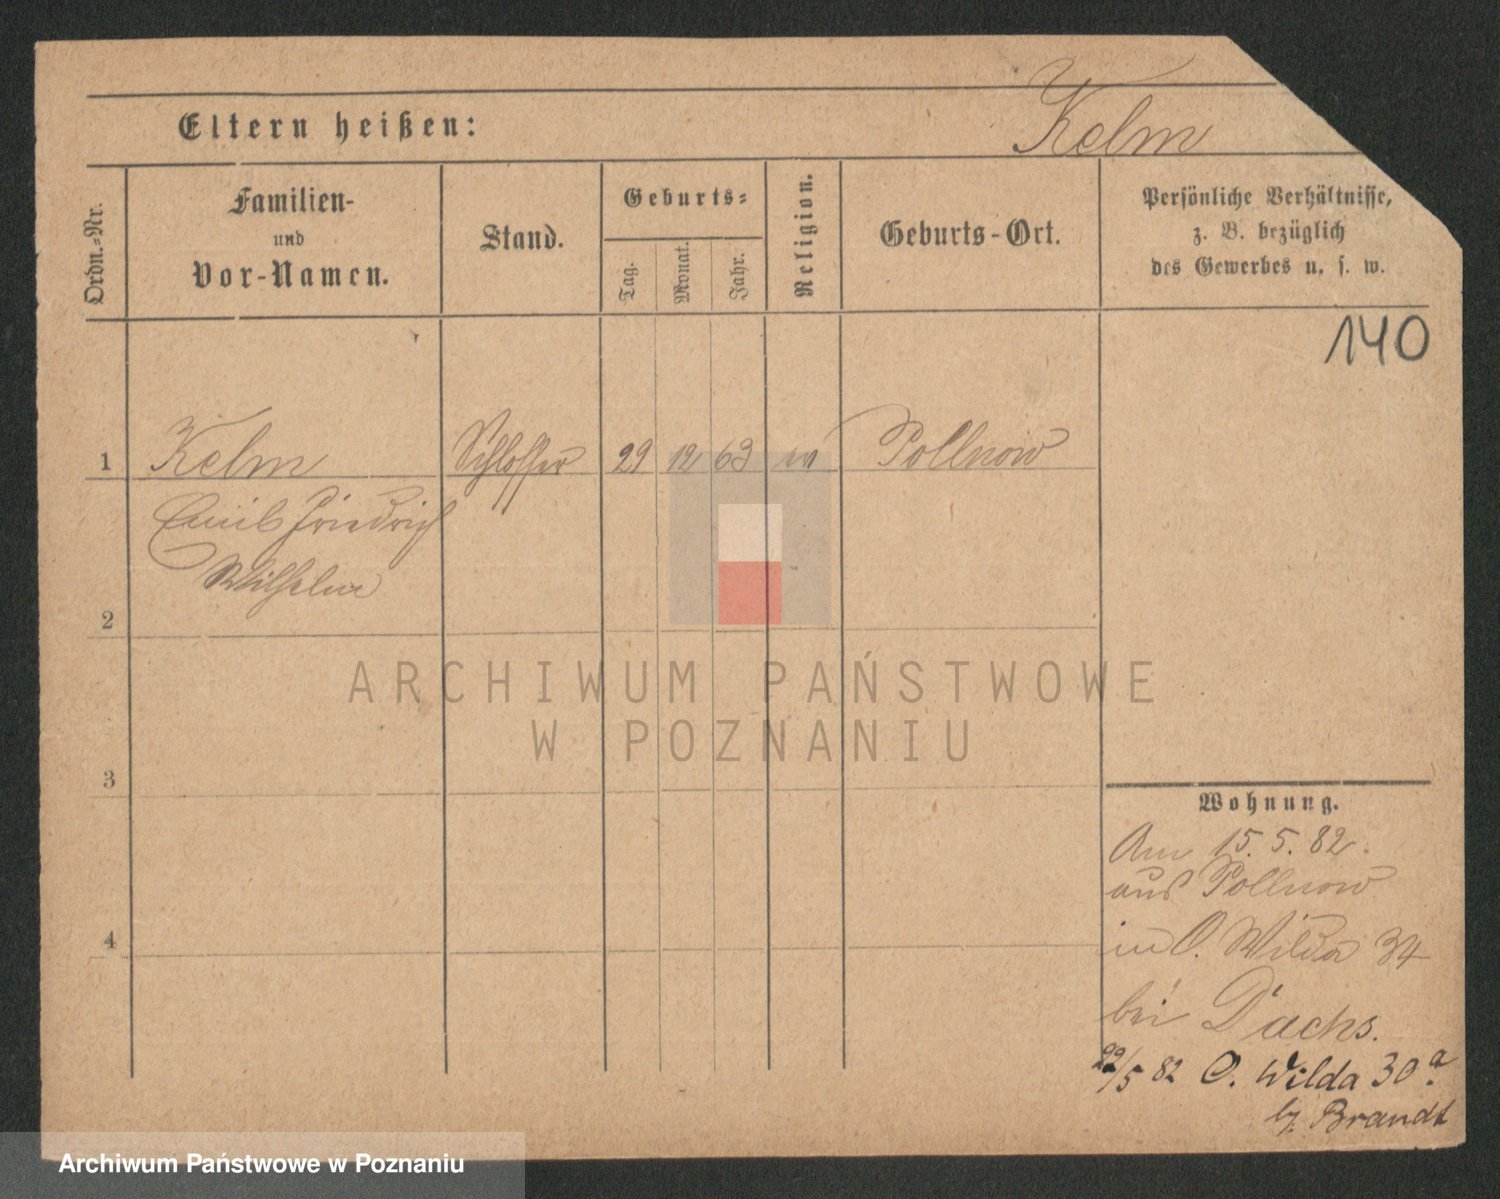 Kelm
Eltern heißen:
Ordn.-Nr.
Familien-
und
Vor-Namen.
Stand.
Geburts-
Tag.
Monat.
Jahr.
Religion.
Geburts-Ort.
Persönliche Verhältnisse,
z. B. bezüglich
des Gewerbes u. s. w.
140
1 Kelm Schlosser 29 12 63 ev Pollnow
Emil Friedrich
Wilhelm
2
3
4
ARCHIWUM PAŃSTWOWE
W POZNANIU
Wohnung.
Am 15.5.82.
aus Pollnow
in O. Wilda 34
bei Dachs.
22/5 82 O. Wilda 30a.
b. Brandt
Archiwum Państwowe w Poznaniu